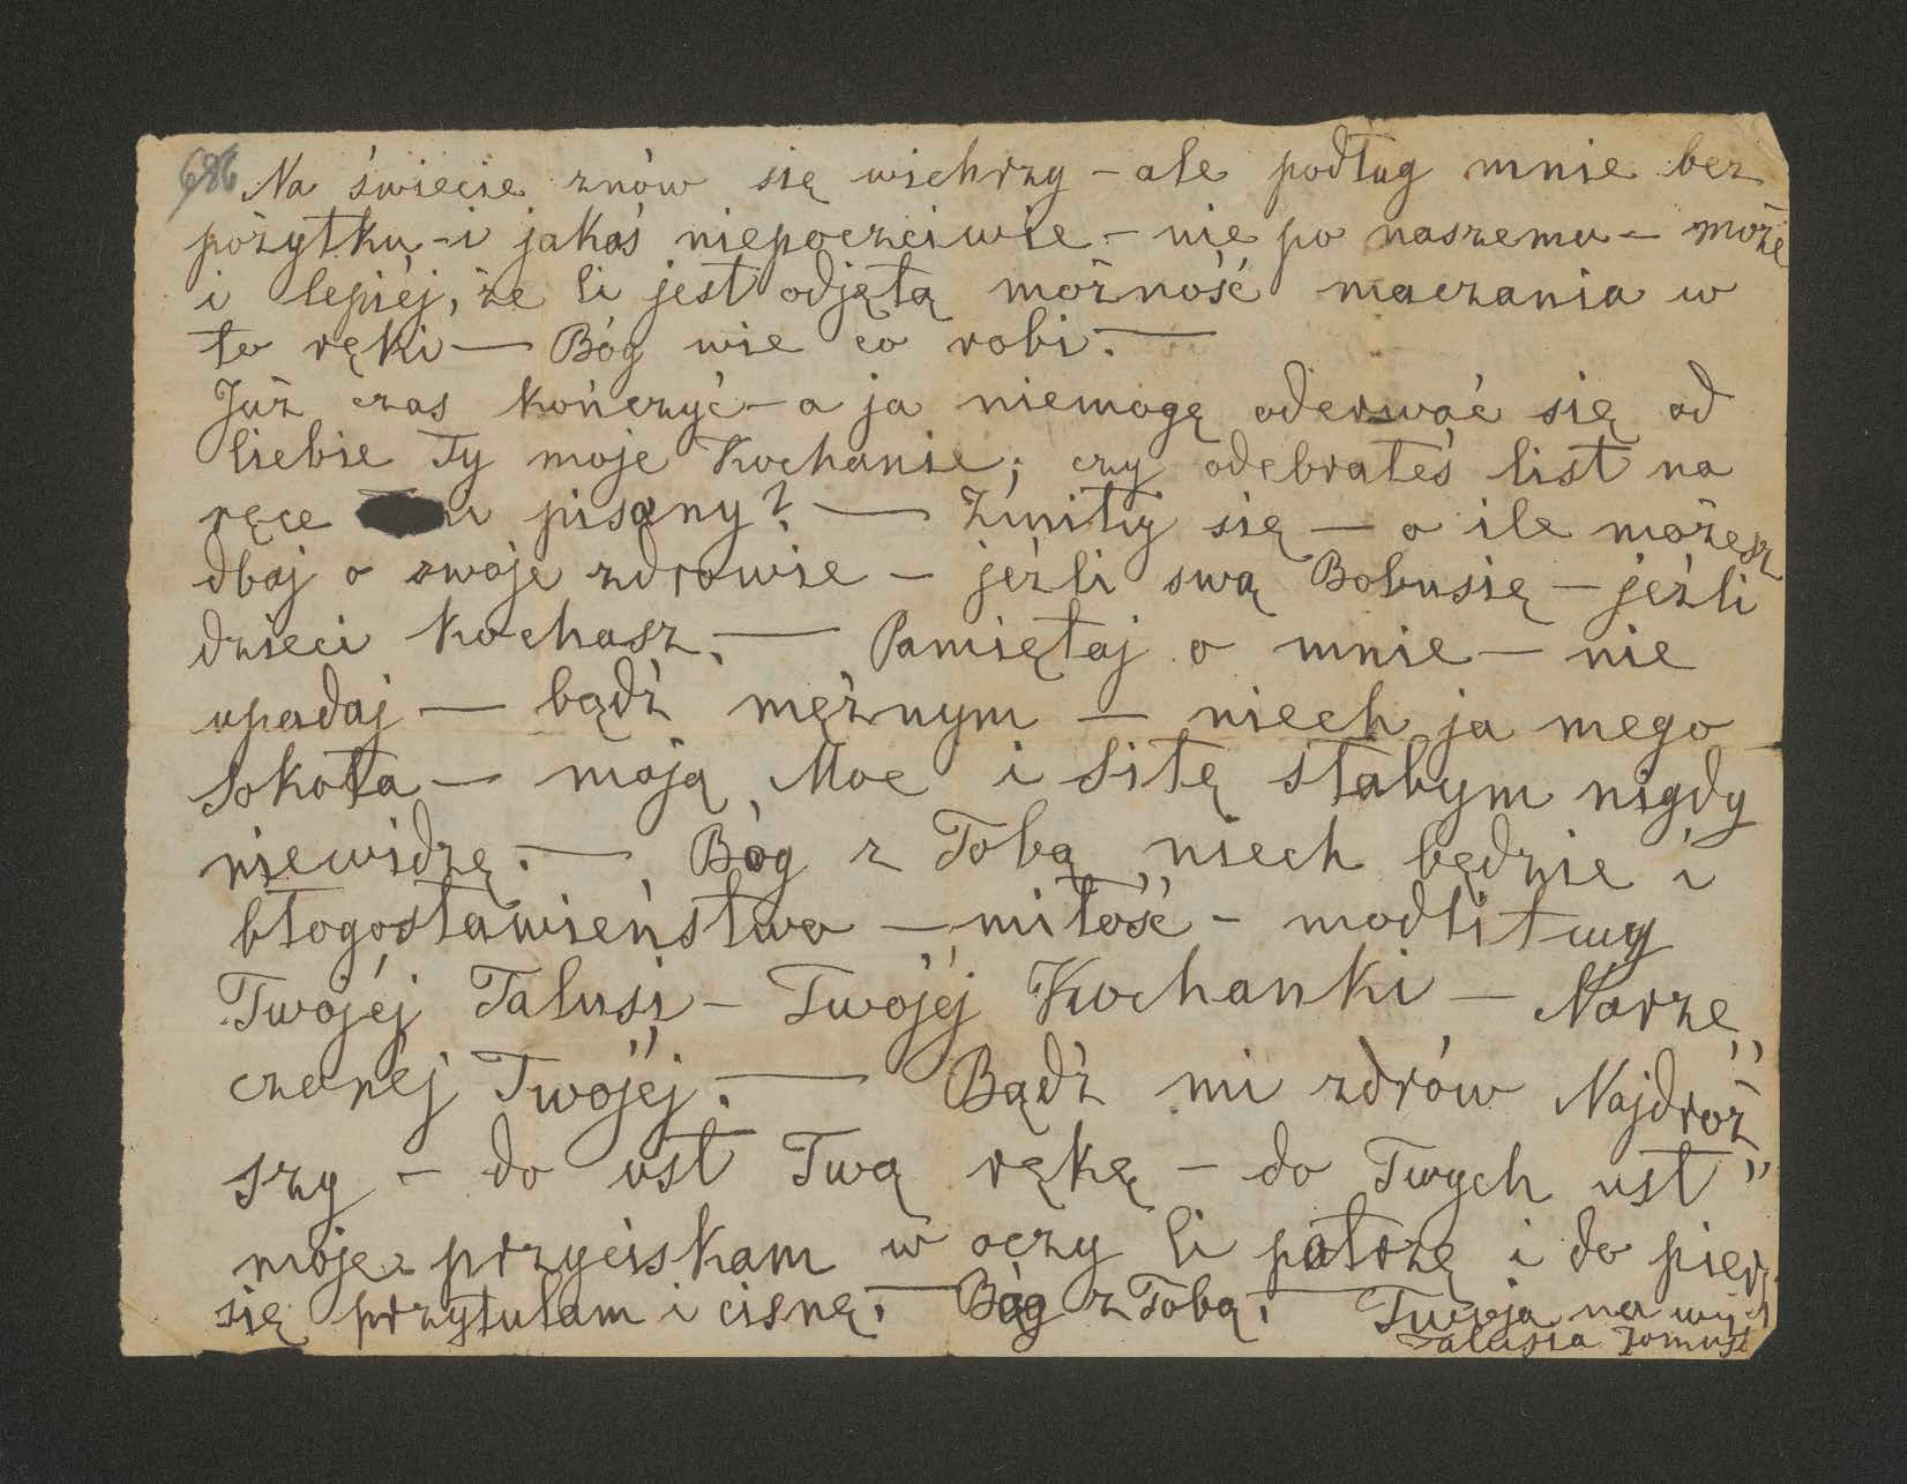 Na świecie znów się wichrzy – ale podług mnie bez
pożytku – i jakoś niepoczciwie – nie po naszemu – może
i lepiéj, że Ci jest odjętą możność maczania w
to ręki — Bóg wie co robi. —
Już czas kończyć – a ja niemogę oderwać się od
Ciebie Ty moje Kochanie; czy odebrałeś list na
ręce pisany? — Zmiłuj się — o ile możesz
dbaj o swoje zdrowie – jeźli swą Bobusię – jeźli
dzieci kochasz. — Pamiętaj o mnie – nie
upadaj — bądź mężnym — niech ja mego
Sokoła — moją Moc i Siłę słabym nigdy
niewidzę. — Bóg z Tobą niech będzie i
błogosławieństwo – miłość – modlitwy
Twojéj Talusi – Twojéj Kochanki – Narze„
czonéj Twojéj. — Bądź mi zdrów Najdroż„
szy – do ust Twą rękę – do Twych ust
moje przyciskam w oczy Ci patrzę i do
się przytulam i cisnę. — Bóg z Tobą. — Twoja na
Talusia